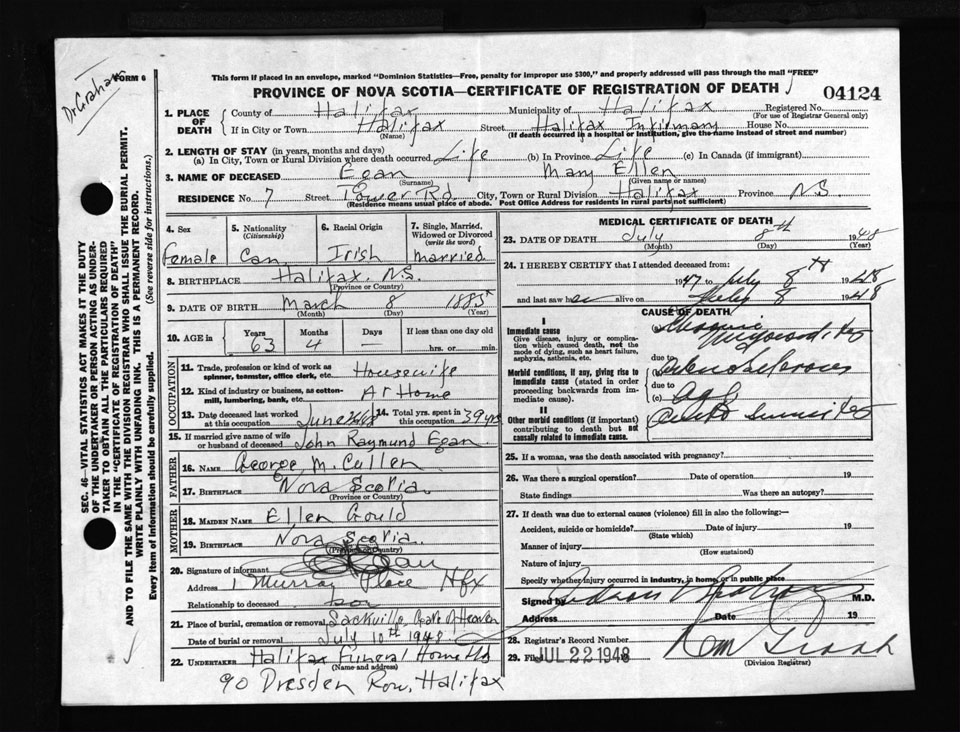 Dr Graham
FORM 6
This form if placed in an envelope, marked "Dominion Statistics—Free, penalty for improper use $300," and properly addressed will pass through the mail "FREE"
PROVINCE OF NOVA SCOTIA—CERTIFICATE OF REGISTRATION OF DEATH
04124
1. PLACE OF DEATH County of Halifax Municipality of Halifax Registered No.
(For use of Registrar General only)
If in City or Town Halifax Street Halifax Infirmary House No.
(Name) (If death occurred in a hospital or institution, give the name instead of street and number)
2. LENGTH OF STAY (in years, months and days)
(a) In City, Town or Rural Division where death occurred Life (b) In Province Life (c) In Canada (if immigrant)
3. NAME OF DECEASED Egan Mary Ellen
(Surname) (Given name or names)
RESIDENCE No. 7 Street Tower Rd. City, Town or Rural Division Halifax Province N S
(Residence means usual place of abode. Post Office Address for residents in rural parts not sufficient)
4. Sex 5. Nationality (Citizenship) 6. Racial Origin 7. Single, Married, Widowed or Divorced (write the word)
Female Can. Irish Married
8. BIRTHPLACE Halifax, N.S.
(Province or Country)
9. DATE OF BIRTH March 8 1885
(Month) (Day) (Year)
10. AGE Years Months Days If less than one day old
63 4 — hrs. or min.
OCCUPATION
11. Trade, profession or kind of work as spinner, teamster, office clerk, etc. Housewife
12. Kind of industry or business, as cotton-mill, lumbering, bank, etc. At Home
13. Date deceased last worked at this occupation June 14. Total yrs. spent in this occupation 39 yrs
15. If married give name of wife or husband of deceased John Raymund Egan
FATHER
16. NAME George M. Cullen
17. BIRTHPLACE Nova Scotia
(Province or Country)
MOTHER
18. MAIDEN NAME Ellen Gould
19. BIRTHPLACE Nova Scotia
(Province or Country)
20. Signature of informant
Address 1 Murray Place Hfx
Relationship to deceased son
21. Place of burial, cremation or removal Sackville, Gate of Heaven
Date of burial or removal July 10th 1948
22. UNDERTAKER Halifax Funeral Home Ltd
(Name and address)
90 Dresden Row, Halifax
MEDICAL CERTIFICATE OF DEATH
23. DATE OF DEATH July 8th 1948
(Month) (Day) (Year)
24. I HEREBY CERTIFY that I attended deceased from:
1947 to July 8th 1948
and last saw her alive on July 8 1948
CAUSE OF DEATH
I
Immediate cause
Give disease, injury or complication which caused death, not the mode of dying, such as heart failure, asphyxia, asthenia, etc.
(a) Chronic Myocarditis
due to
Morbid conditions, if any, giving rise to immediate cause (stated in order proceeding backwards from immediate).
(b)
due to
(c)
II
Other morbid conditions (if important) contributing to death but not causally related to immediate cause.
25. If a woman, was the death associated with pregnancy?
26. Was there a surgical operation? Date of operation 19
State findings Was there an autopsy?
27. If death was due to external causes (violence) fill in also the following:—
Accident, suicide or homicide? Date of injury 19
(State which)
Manner of injury
(How sustained)
Nature of injury
Specify whether injury occurred in industry, in home or in public place
Signed by M.D.
Address Date 19
28. Registrar's Record Number
29. Filed JUL 22 1948
(Division Registrar)
SEC. 46—VITAL STATISTICS ACT MAKES IT THE DUTY
OF THE UNDERTAKER OR PERSON ACTING AS UNDERTAKER
TO OBTAIN ALL THE PARTICULARS REQUIRED
IN THE "CERTIFICATE OF REGISTRATION OF DEATH"
AND TO FILE THE SAME WITH THE DIVISION REGISTRAR WHO SHALL ISSUE THE BURIAL PERMIT.
WRITE PLAINLY WITH UNFADING INK. THIS IS A PERMANENT RECORD.
Every item of information should be carefully supplied. (See reverse side for instructions.)